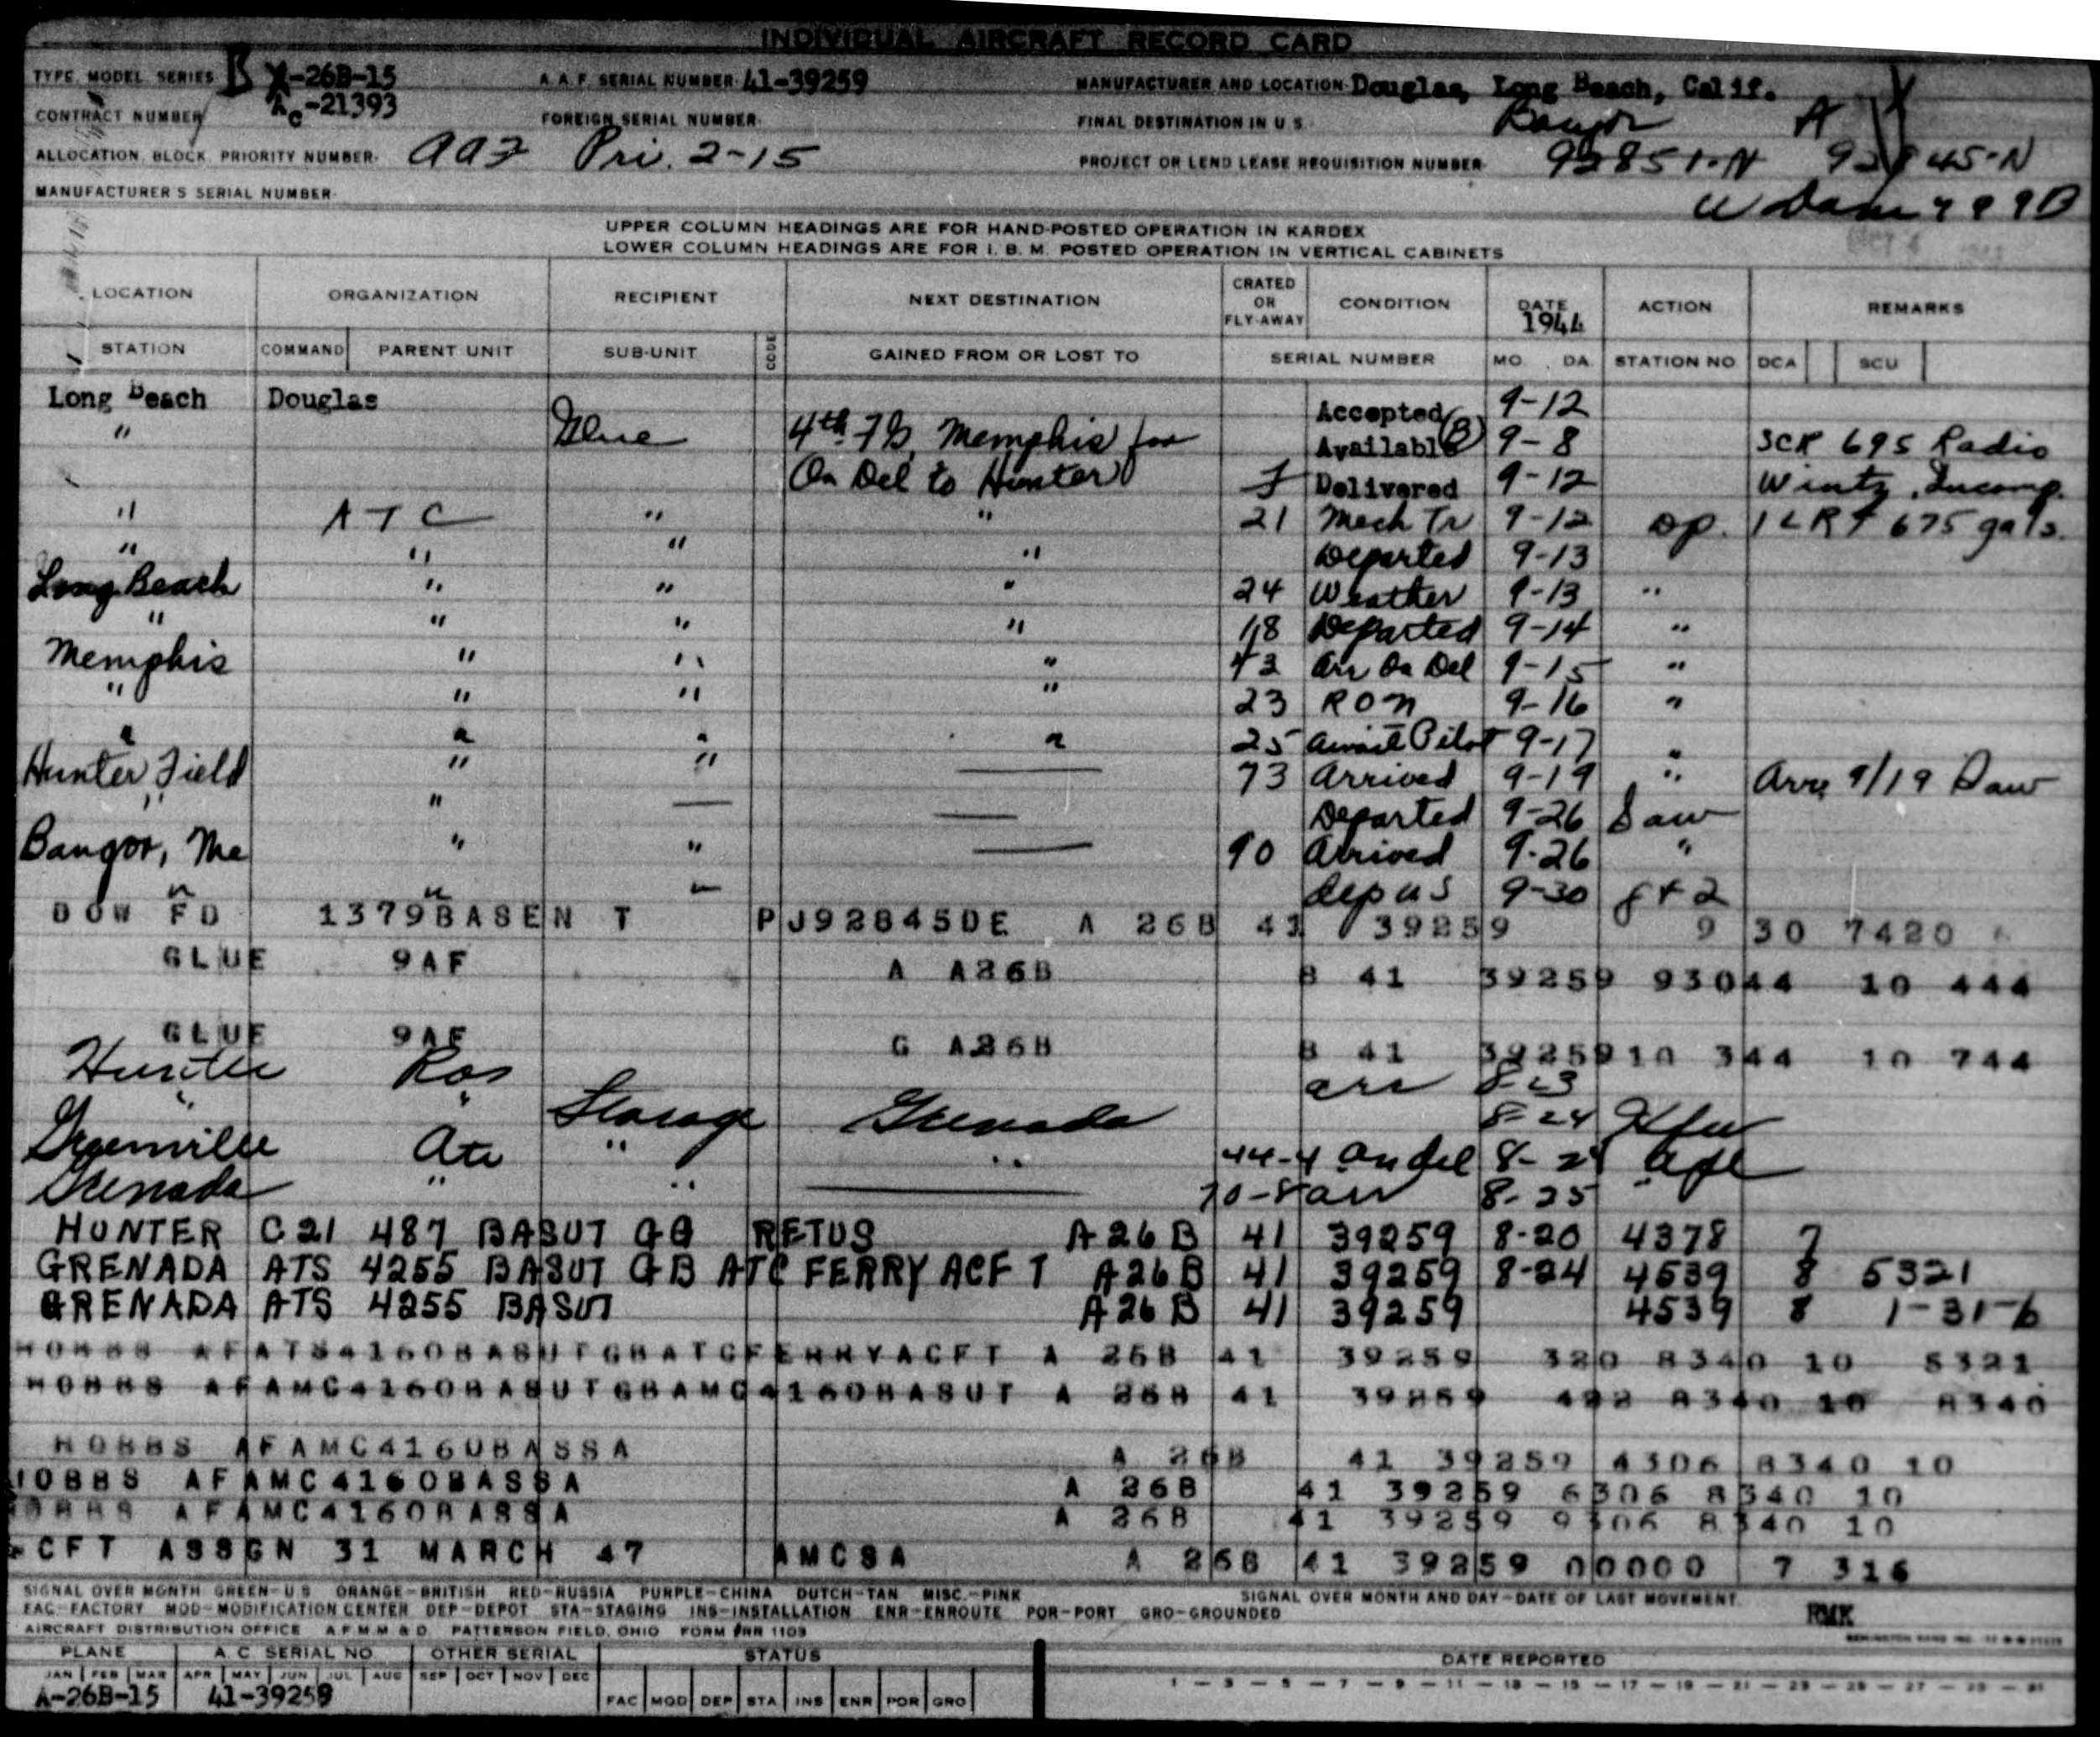 INDIVIDUAL AIRCRAFT RECORD CARD
TYPE, MODEL, SERIES B A-26B-15 A.A.F. SERIAL NUMBER 41-39259 MANUFACTURER AND LOCATION Douglas, Long Beach, Calif.
CONTRACT NUMBER Ac-21393 FOREIGN SERIAL NUMBER FINAL DESTINATION IN U.S. Bangor A
ALLOCATION, BLOCK, PRIORITY NUMBER. aaf Pri. 2-15 PROJECT OR LEND LEASE REQUISITION NUMBER 92851-N 92845-N
MANUFACTURER'S SERIAL NUMBER
UPPER COLUMN HEADINGS ARE FOR HAND-POSTED OPERATION IN KARDEX
LOWER COLUMN HEADINGS ARE FOR I. B. M. POSTED OPERATION IN VERTICAL CABINETS
LOCATION ORGANIZATION RECIPIENT NEXT DESTINATION CRATED OR FLY-AWAY CONDITION DATE 1944 ACTION REMARKS
STATION COMMAND PARENT UNIT SUB-UNIT CODE GAINED FROM OR LOST TO SERIAL NUMBER MO. DA. STATION NO DCA SCU
Long Beach Douglas Accepted 9-12
" Glue 4th FG, Memphis for Available (B) 9-8 SCR 695 Radio
On Del to Hunter F Delivered 9-12 Wintz, Incomp.
" ATC " " 21 Mech Tr 9-12 op. 1 LRF 675 gals.
" " " " Departed 9-13
Long Beach " " " 24 Weather 9-13 "
" " " " 18 Departed 9-14 "
Memphis " " " 43 arr On Del 9-15 "
" " " " 23 RON 9-16 "
" " " " 25 await Pilot 9-17 "
Hunter Field " " — 73 Arrived 9-19 " Arr 9/19 Daw
" " — — Departed 9-26 Daw
Bangor, Me " " — 90 Arrived 9-26 "
" " " dep US 9-30
DOW FD 1379BASEN T PJ92845DE A 26B 41 39259 9 30 7420
GLUE 9AF A A26B B 41 39259 93044 10 444
GLUE 9AF G A26B B 41 39259 10 344 10 744
Hunter arr 8-23
" " Storage Grenada 8-24
Greenville Atc " " 44-4 on del 8-24
Grenada " " — arr 8-25
HUNTER C21 487 BASUT GG RETUS A26B 41 39259 8-20 4378 7
GRENADA ATS 4255 BASUT GB ATC FERRY ACF T A26B 41 39259 8-24 4539 8 5321
GRENADA ATS 4255 BASUT A26B 41 39259 4539 8 1-31-6
HOBBS AFATS4160BASUTGBATCFERRYACFT A 26B 41 39259 320 8340 10 5321
HOBBS AFAMC4160BASUTGBAMC4160BASUT A 26B 41 39259 422 8340 10 8340
HOBBS AFAMC4160BASSA A 26B 41 39259 4306 8340 10
HOBBS AFAMC4160BASSA A 26B 41 39259 6306 8340 10
HOBBS AFAMC4160BASSA A 26B 41 39259 9306 8340 10
ACFT ASSGN 31 MARCH 47 AMCSA A 26B 41 39259 00000 7 316
SIGNAL OVER MONTH GREEN-U S ORANGE-BRITISH RED-RUSSIA PURPLE-CHINA DUTCH-TAN MISC.-PINK SIGNAL OVER MONTH AND DAY-DATE OF LAST MOVEMENT.
FAC-FACTORY MOD-MODIFICATION CENTER DEP-DEPOT STA-STAGING INS-INSTALLATION ENR-ENROUTE POR-PORT GRO-GROUNDED RMK
AIRCRAFT DISTRIBUTION OFFICE A.F.M.M & D. PATTERSON FIELD, OHIO FORM #RR 1103
PLANE A. C. SERIAL NO. OTHER SERIAL STATUS DATE REPORTED
JAN FEB MAR APR MAY JUN JUL AUG SEP OCT NOV DEC 1 - 3 - 5 - 7 - 9 - 11 - 13 - 15 - 17 - 19 - 21 - 23 - 25 - 27 - 29 - 31
A-26B-15 41-39259 FAC MOD DEP STA INS ENR POR GRO